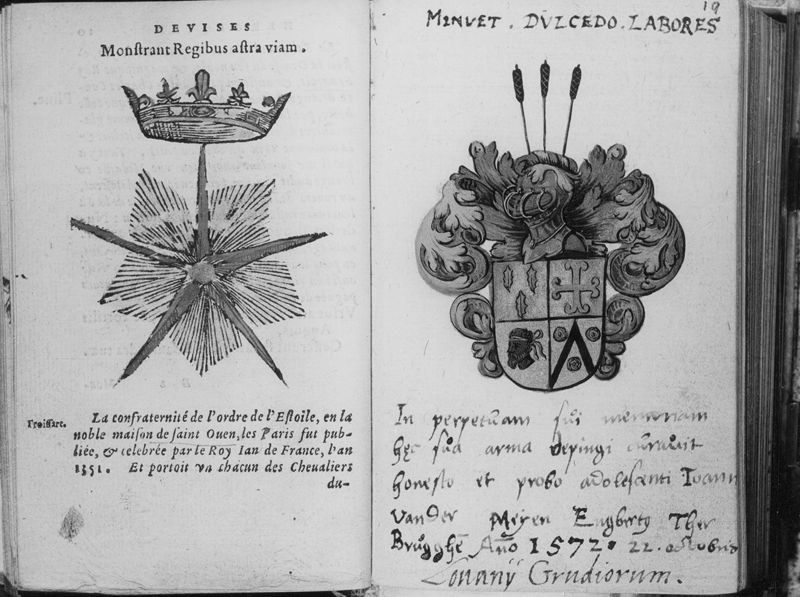 DEVISES
Monſtrant Regibus aſtra viam.
Froiſſart.
La confraternité de l'ordre de l'Eſtoile, en la
noble maiſon de ſaint Ouen, les Paris fut pub-
liée, & celebrée par le Roy Ian de France, l'an
1351. Et portoit vn chacun des Cheualiers
du-
19
MINVET . DVLCEDO . LABORES
In perpetuam sui memoriam
hęc sua arma depingi curauit
honesto et probo adolescenti Ioann
Vander Meyen Engbertus Ther
Brůgghē Año 1572. 22. octobris
Louanÿ Grudiorum.